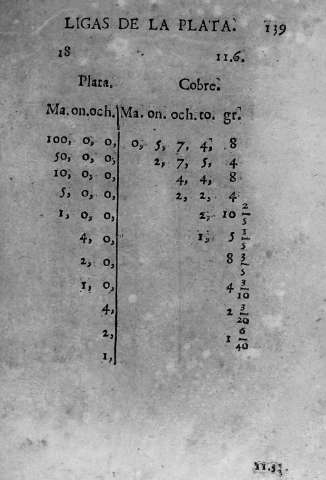 LIGAS DE LA PLATA. 139
18 11.6.
Plata. Cobre.
Ma. on. och. Ma. on. och. to. gr.
100, 0, 0, 0, 5, 7, 4, 8
50, 0, 0, 2, 7, 5, 4
10, 0, 0, 4, 4, 8
5, 0, 0, 2, 2, 4
1, 0, 0, 2, 10 2/5
4, 0, 1, 5 1/5
2, 0, 8 3/5
1, 0 4 3/10
4, 2 3/20
2, 1 6/40
1,
11.5